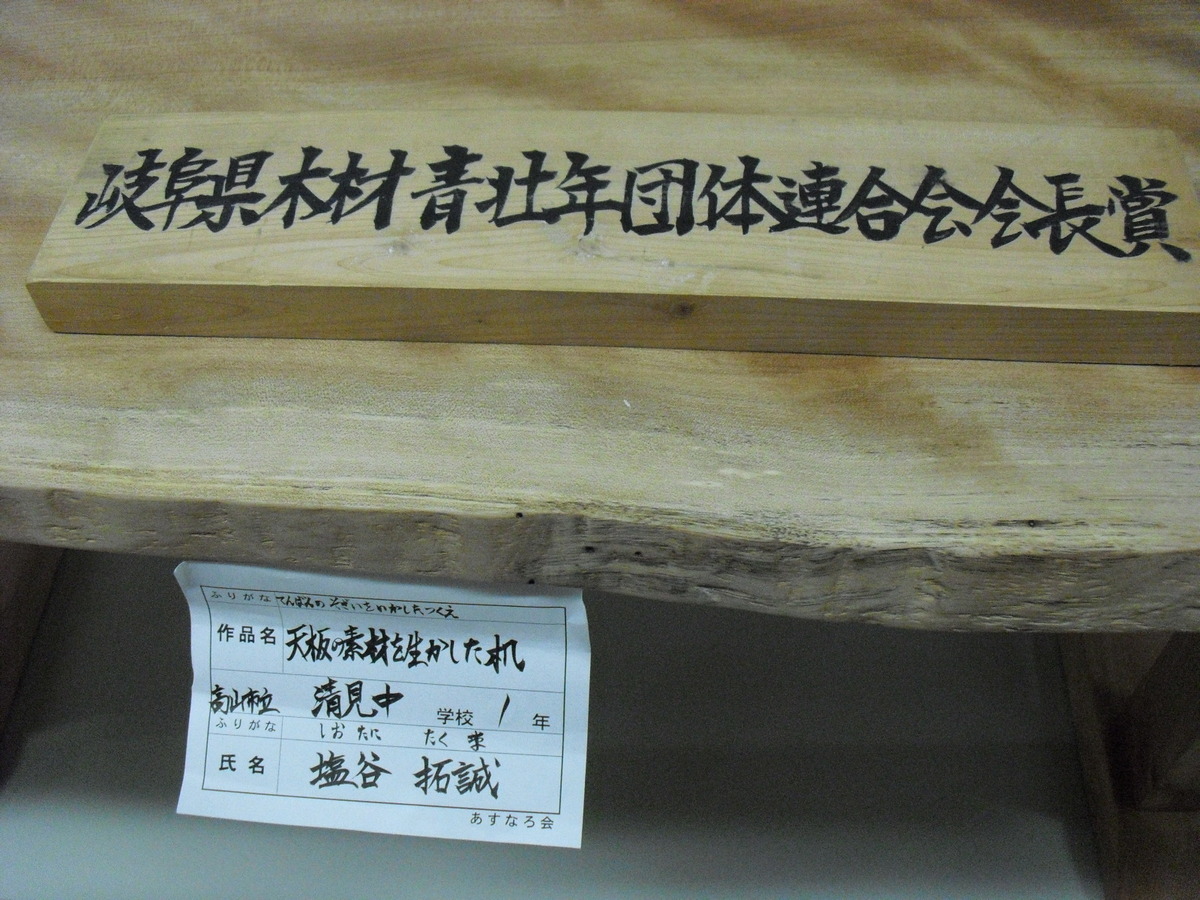 岐阜県木材青壮年団体連合会会長賞
ふりがな てんばんの そざいをいかしたつくえ
作品名 天板の素材を生かした机
高山市立 清見中 学校 1 年
ふりがな しお たに たく ま
氏名 塩谷 拓誠
あすなろ会